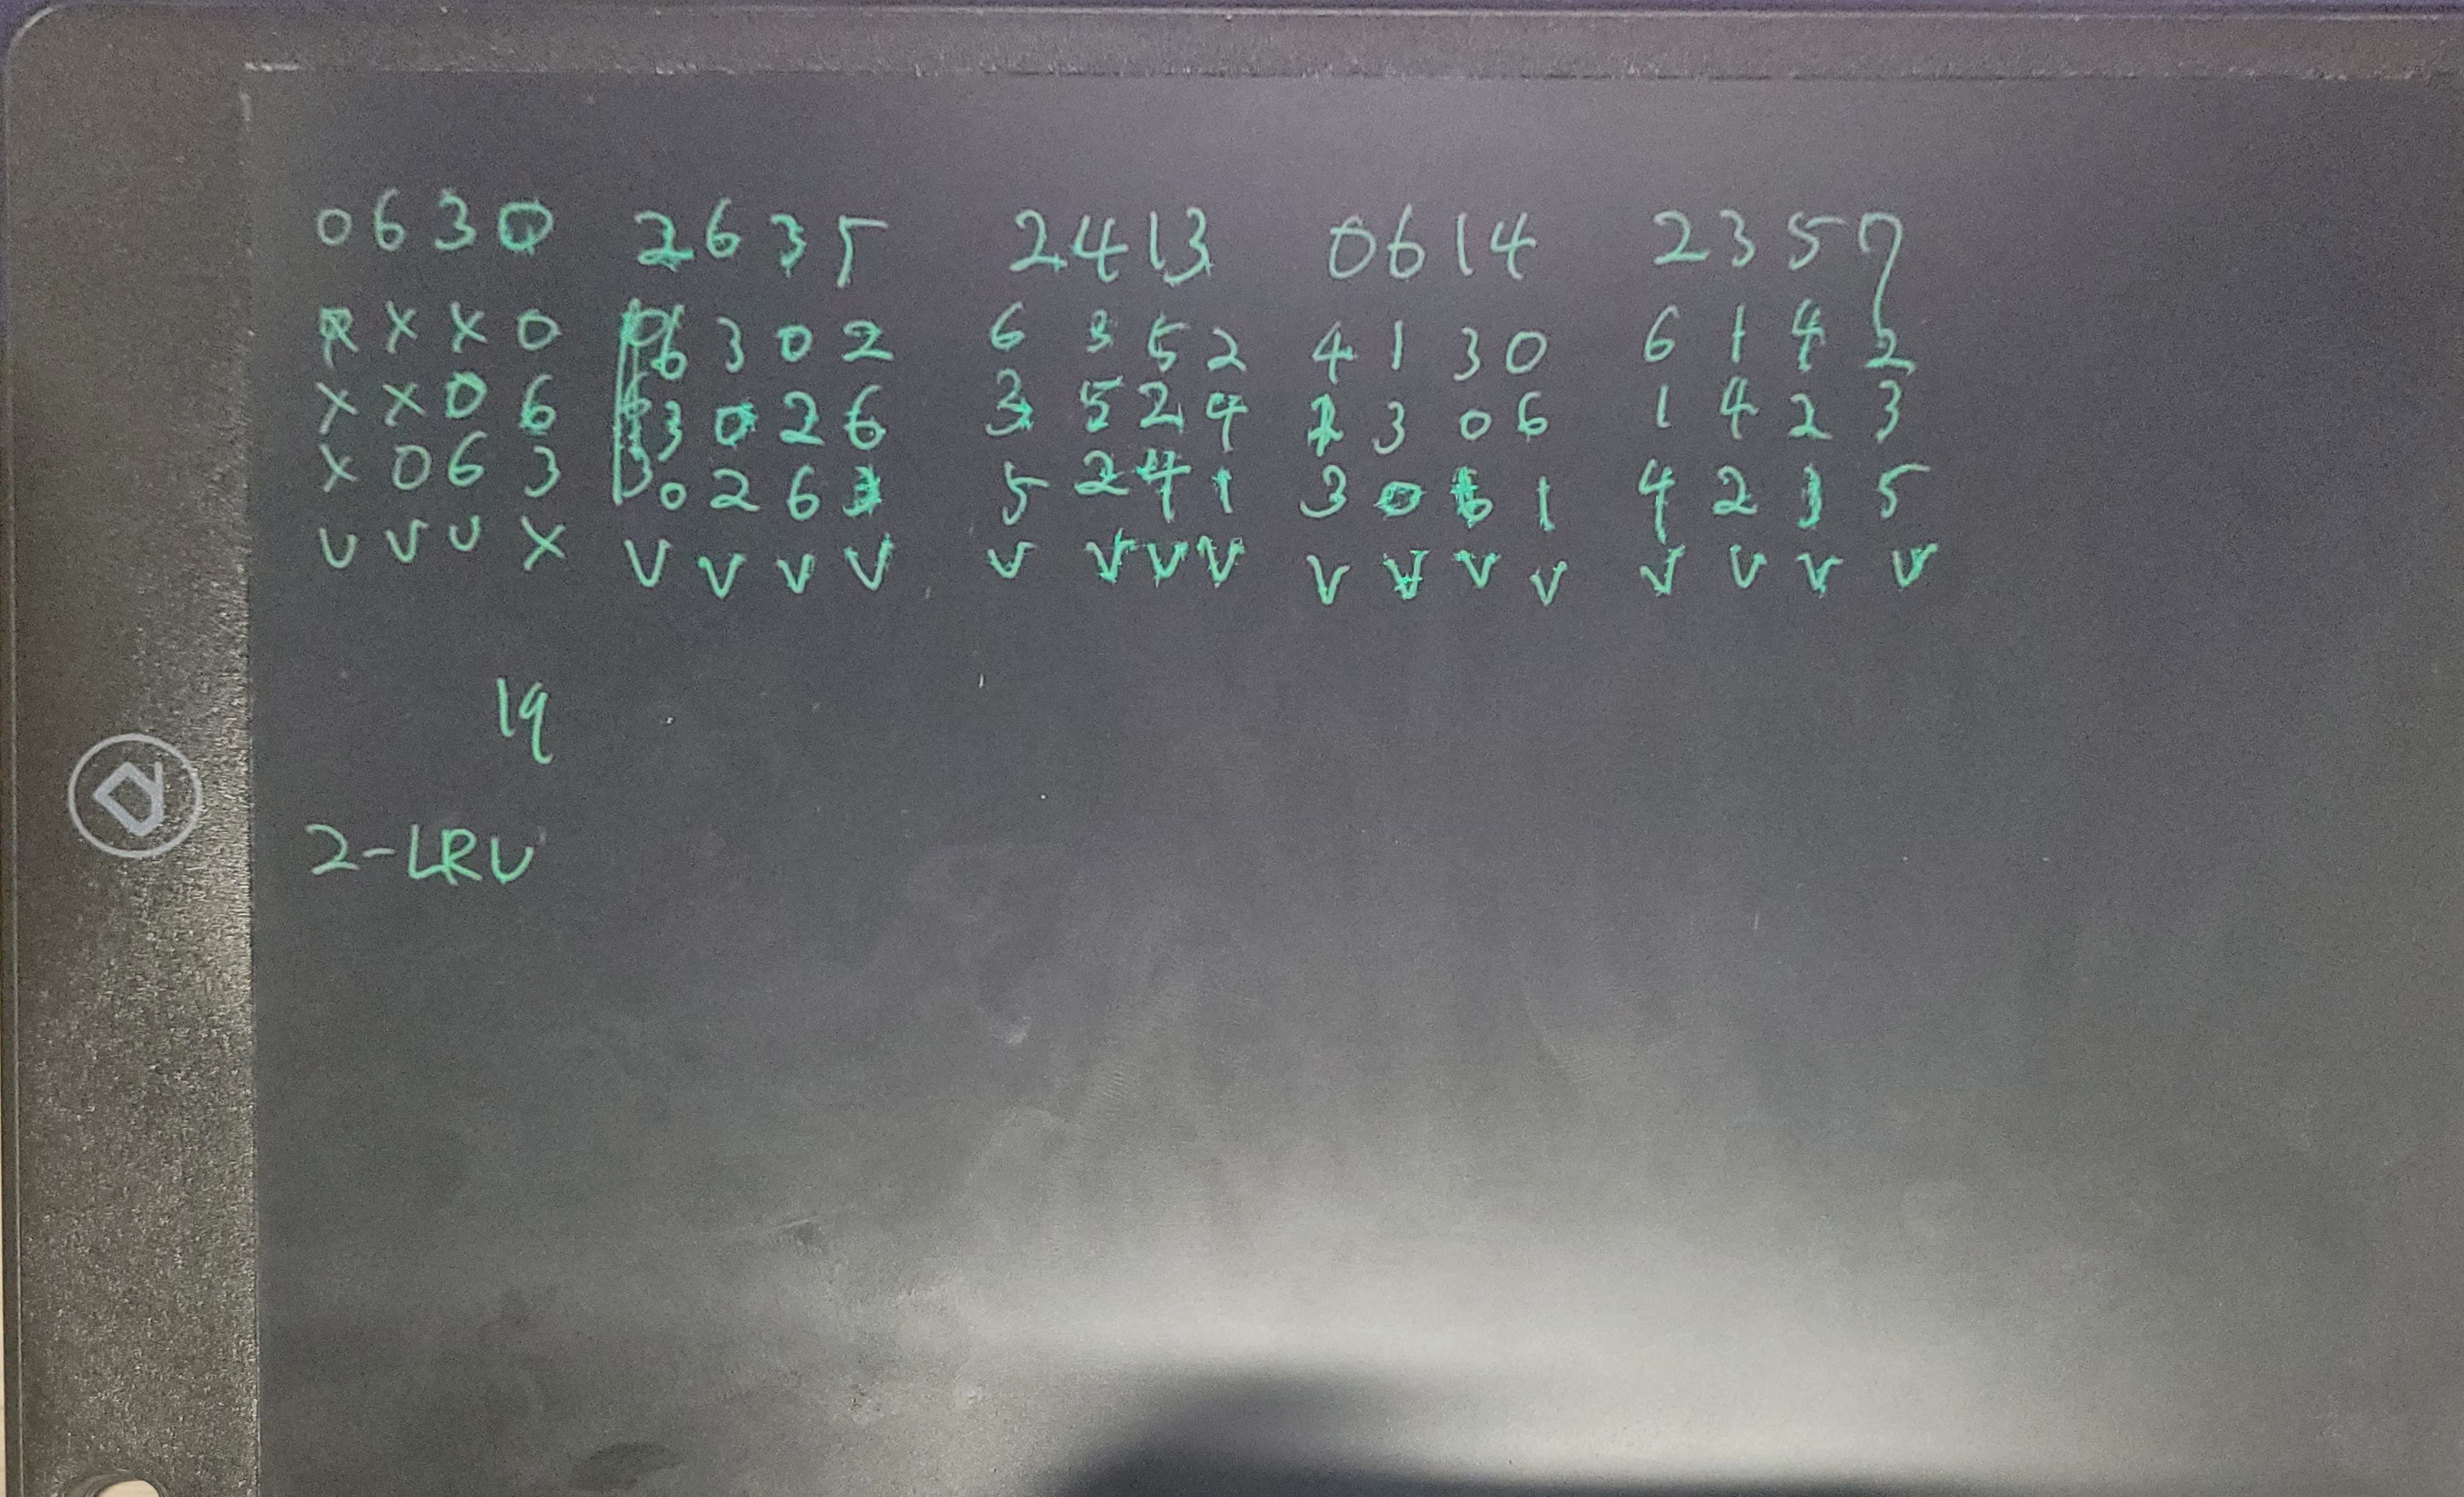 0630 2635 2413 0614 2357
X X X 0 6 3 0 2 6 3 5 2 4 1 3 0 6 1 4 2
X X 0 6 3 0 2 6 3 5 2 4 2 3 0 6 1 4 2 3
X 0 6 3 0 2 6 3 5 2 4 1 3 0 6 1 4 2 3 5
V V V X V V V V V V V V V V V V V V V V
19
2-LRU